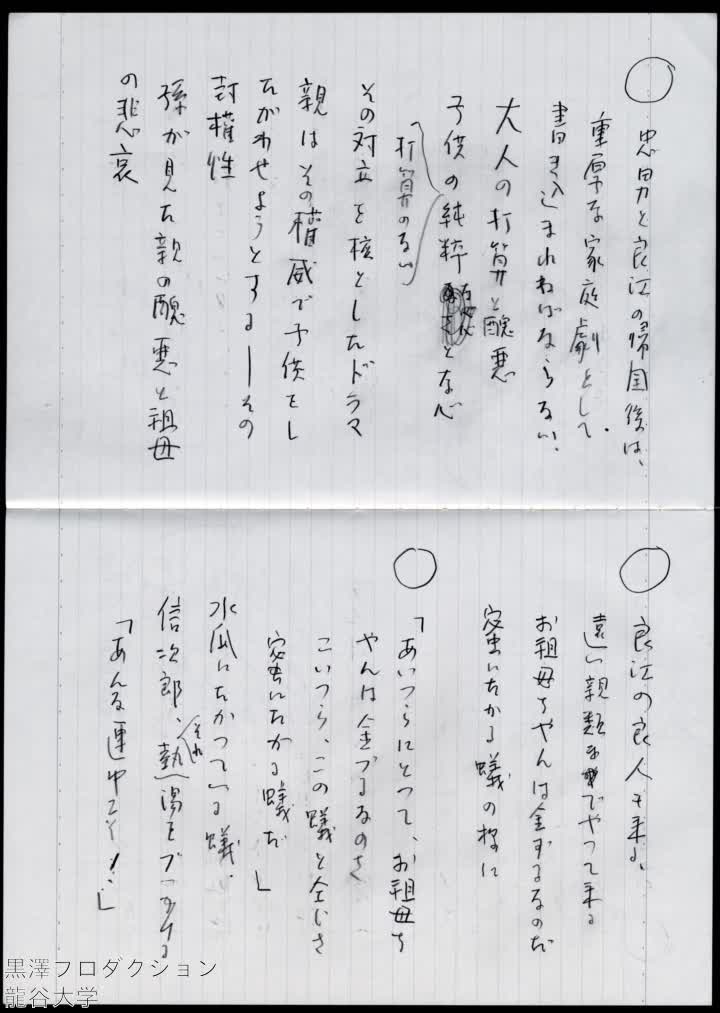 忠男と良江の帰国後は、
重厚な家庭劇として、
書き込まれねばならない、
大人の打算と醜悪
子供の純粋さとな心
(打算のない)
その対立を核としたドラマ
親はその権威で子供をし
たがわせようとする―その
封権性
孫が見た親の醜悪と祖母
の悲哀
良江の良人も来る、
遠い親類までやって来る
お祖母ちゃんは金ずるなのだ
蜜にたかる蟻の様に
「あいつらにとって、お祖母ち
やんは金づるなのさ
こいつら、この蟻と全じさ
蜜にたかる蟻だ」
水瓜にたかっている蟻、
信次郎、それに熱湯をブッかける
「あんな連中エイ!」
黒澤プロダクション
龍谷大学